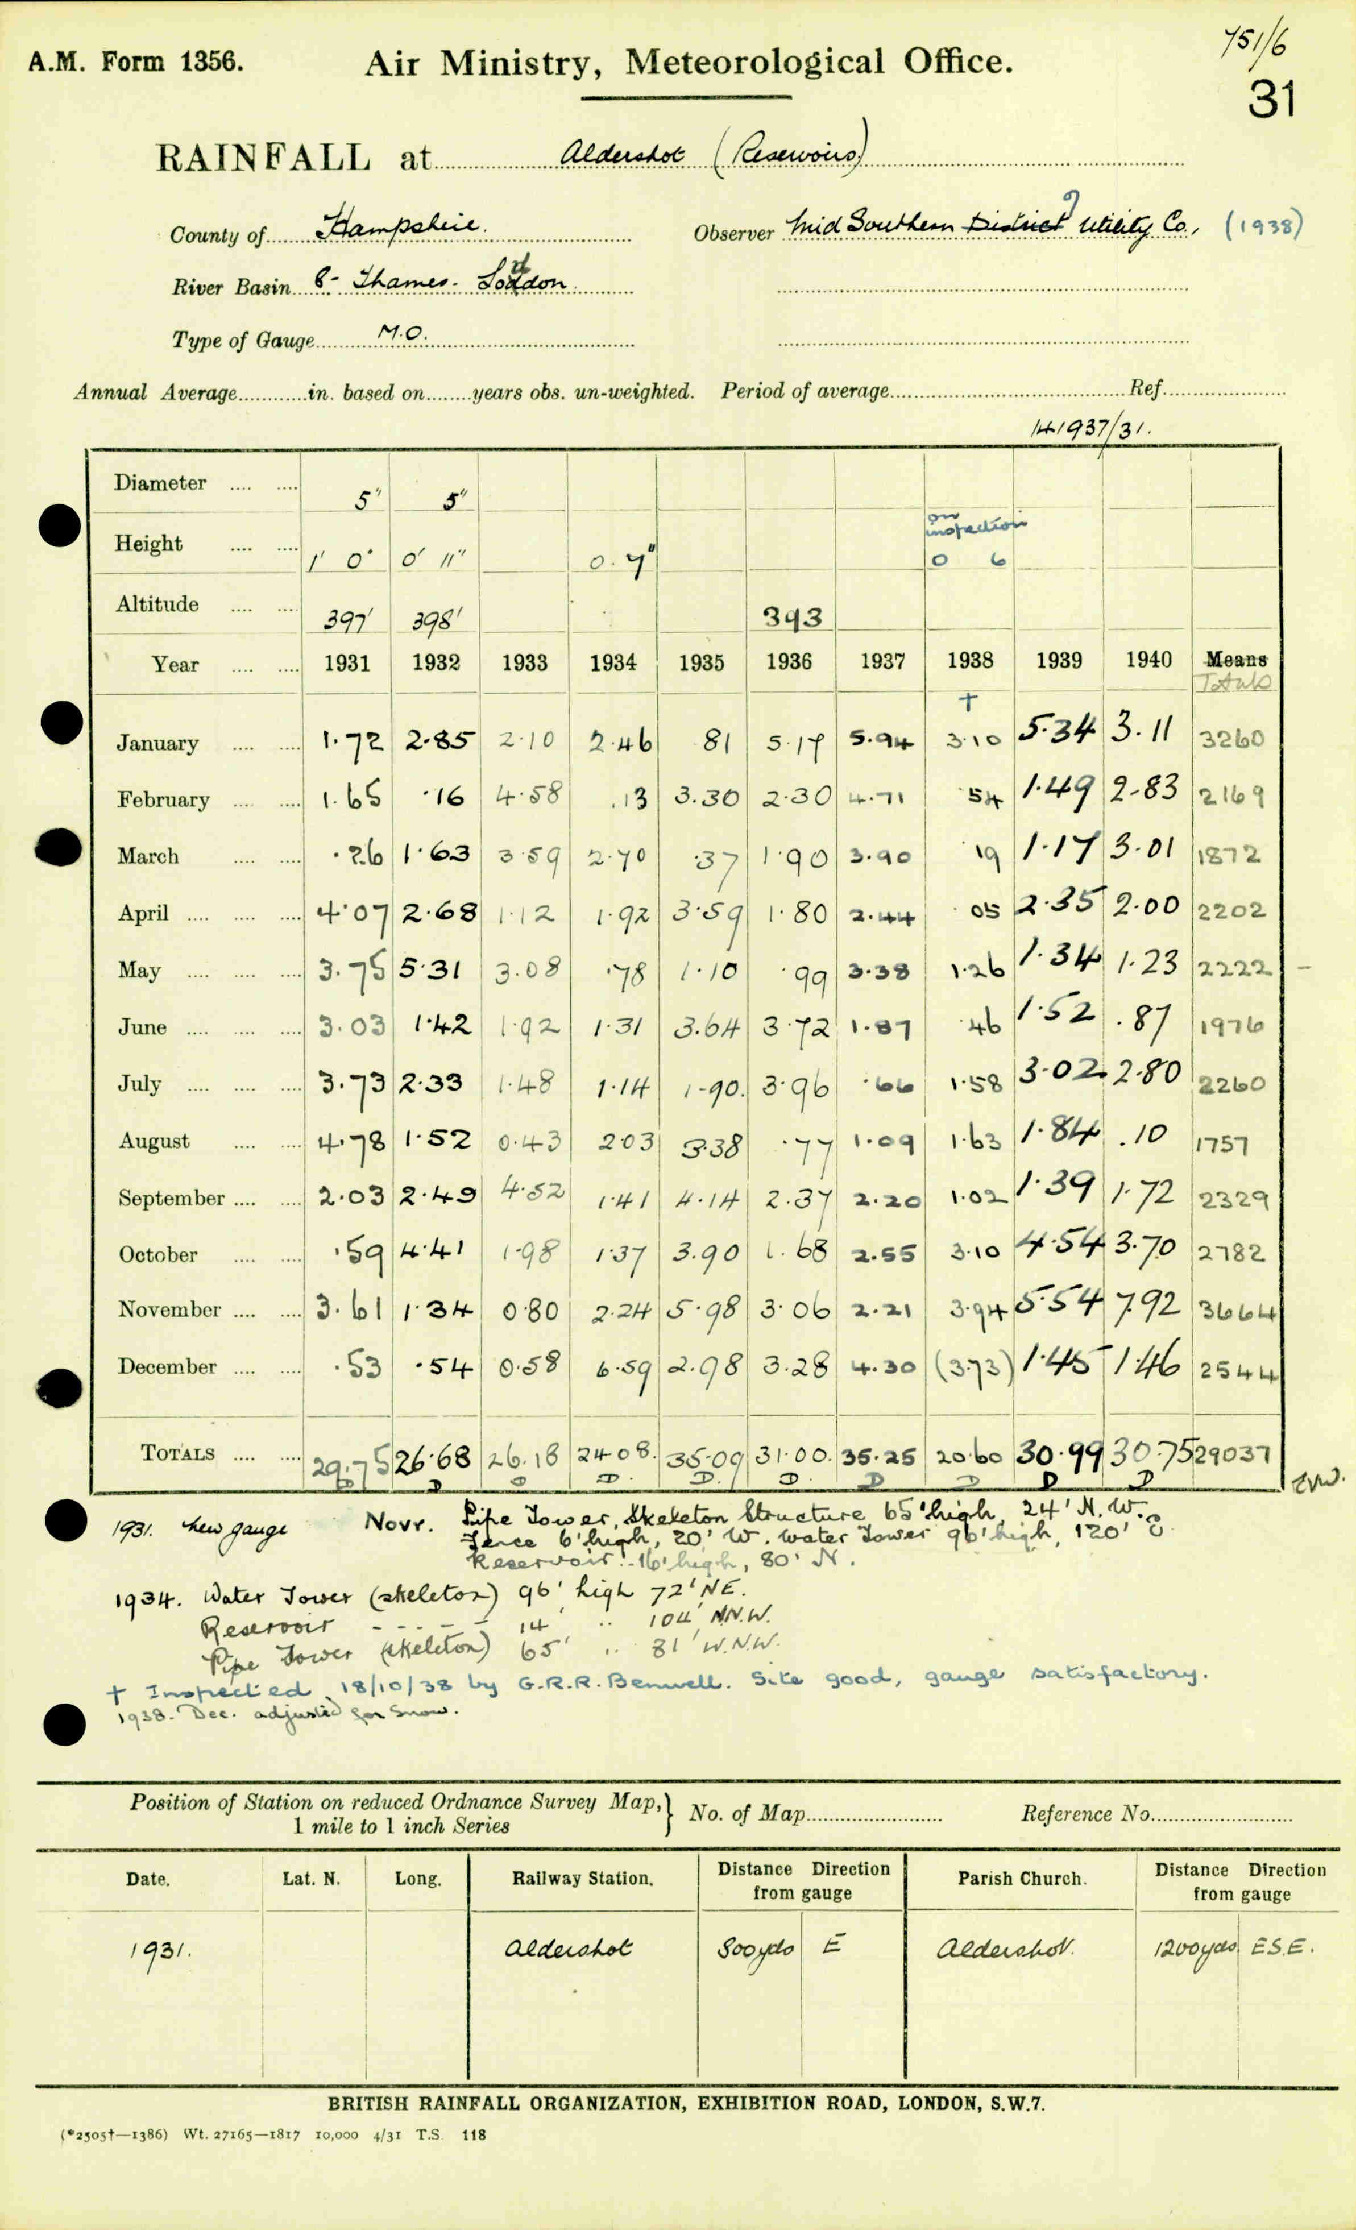 751/6
A.M. Form 1356. Air Ministry, Meteorological Office.
31
RAINFALL at Aldershot (Reservoirs)
County of Hampshire. Observer Mid Southern District Utility Co. (1938)
River Basin 8- Thames. Loddon
Type of Gauge M.O.
Annual Average in. based on years obs. un-weighted. Period of average Ref.
H1937/31.
Diameter 5" 5"
on inspection
Height 1' 0" 0' 11" 0.7" 0 6
Altitude 397' 398' 393
Year 1931 1932 1933 1934 1935 1936 1937 1938 1939 1940 Means
Totals
†
January 1.72 2.85 2.10 2.46 81 5.17 5.94 3.10 5.34 3.11 3260
February 1.65 .16 4.58 .13 3.30 2.30 4.71 54 1.49 2.83 2169
March .26 1.63 3.59 2.70 .37 1.90 3.90 19 1.17 3.01 1872
April 4.07 2.68 1.12 1.92 3.59 1.80 2.44 05 2.35 2.00 2202
May 3.75 5.31 3.08 .78 1.10 .99 3.38 1.26 1.34 1.23 2222 –
June 3.03 1.42 1.92 1.31 3.64 3.72 1.87 .46 1.52 .87 1976
July 3.73 2.33 1.48 1.14 1.90. 3.96 .66 1.58 3.02 2.80 2260
August 4.78 1.52 0.43 2.03 3.38 .77 1.09 1.63 1.84 .10 1757
September 2.03 2.49 4.52 1.41 4.14 2.37 2.20 1.02 1.39 1.72 2329
October .59 4.41 1.98 1.37 3.90 1.68 2.55 3.10 4.54 3.70 2782
November 3.61 1.34 0.80 2.24 5.98 3.06 2.21 3.94 5.54 7.92 3664
December .53 .54 0.58 6.59 2.98 3.28 4.30 (3.73) 1.45 1.46 2544
TOTALS 29.75 26.68 26.18 24.08. 35.09 31.00. 35.25 20.60 30.99 30.75 29037
D D D D. D. D. D D D D
1931. new gauge Novr. Pipe Tower, Skeleton Structure 65' high, 24' N.W.
Fence 6' high, 20' W. Water Tower 96' high, 120' E
Reservoir 16' high, 80' N.
1934. Water Tower (skeleton) 96' high 72' NE.
Reservoir - - - - - 14' " 104' N.N.W.
Pipe Tower (skeleton) 65' " 81' W.N.W.
† Inspected 18/10/38 by G.R.R. Benwell. Site good, gauge satisfactory.
1938. Dec. adjusted for snow.
Position of Station on reduced Ordnance Survey Map,} No. of Map Reference No.
1 mile to 1 inch Series
Date. Lat. N. Long. Railway Station. Distance Direction from gauge Parish Church. Distance Direction from gauge
1931. Aldershot 800yds E Aldershot. 1200yds E.S.E.
BRITISH RAINFALL ORGANIZATION, EXHIBITION ROAD, LONDON, S.W.7.
(*2505†—1386) Wt. 27165—1817 10,000 4/31 T.S. 118